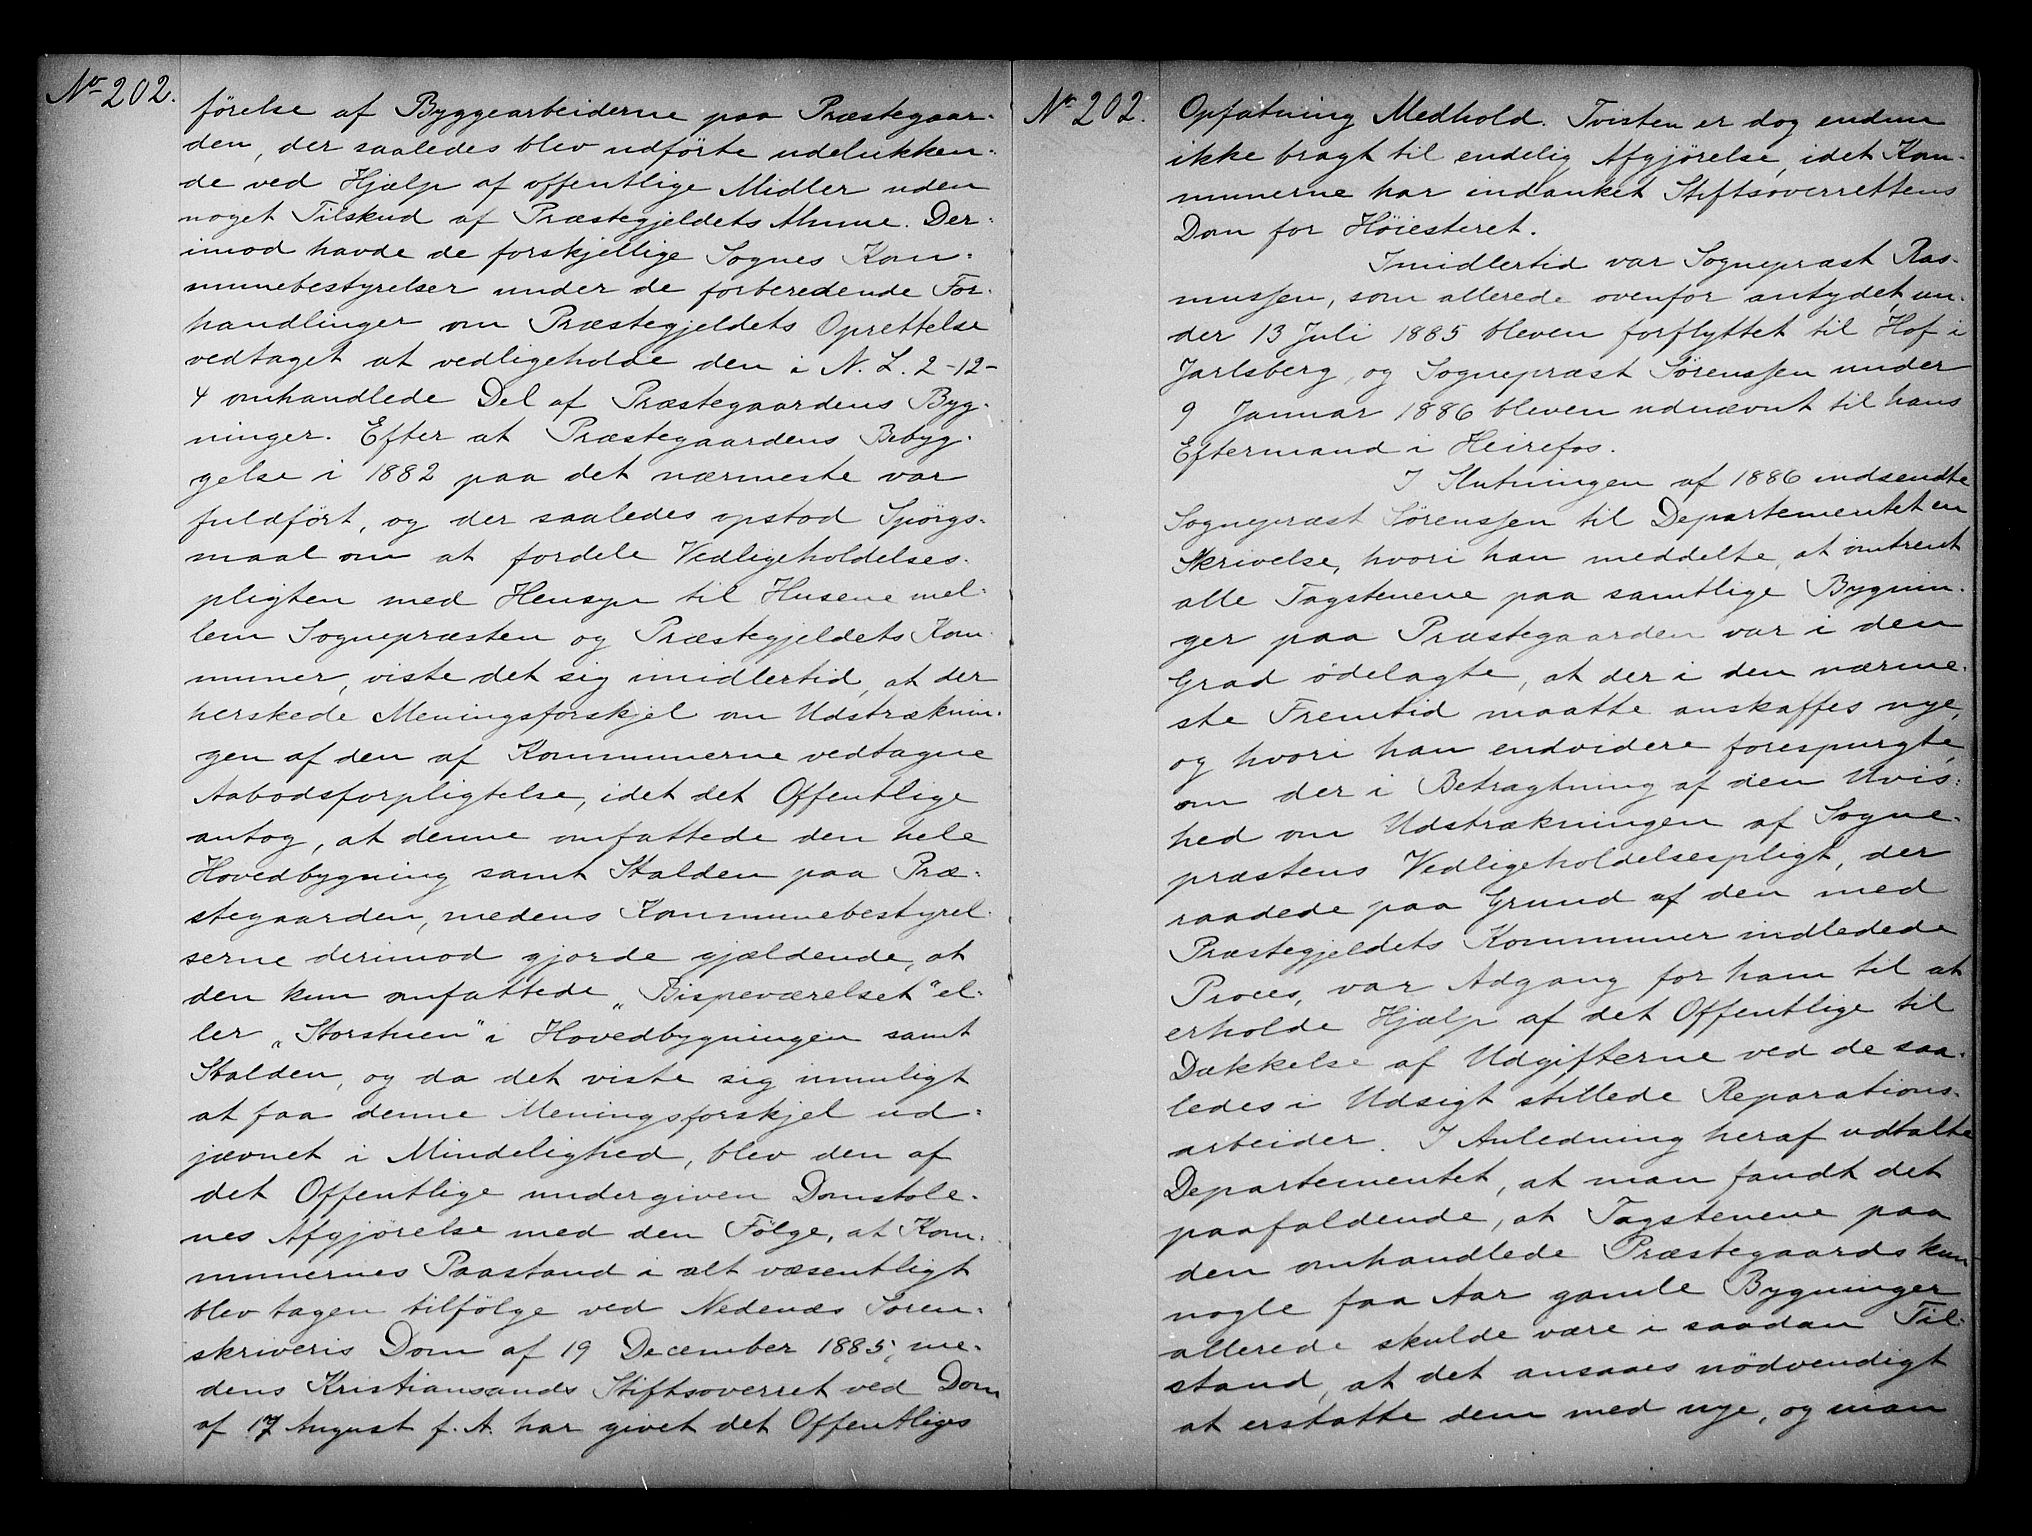 No 202.
førelse af Byggearbeiderne paa Præstegaar-
den, der saaledes blev udførte udelukken-
de ved Hjælp af offentlige Midler uden
noget Tilskud af Præstegjeldets Almue. Der-
imod havde de forskjellige Sognes Kom-
munebestyrelser under de forberedende For-
handlinger om Præstegjeldets Oprettelse
vedtaget at vedligeholde den i N. L. 2-12-
4 omhandlede Del af Præstegaardens Byg-
ninger. Efter at Præstegaardens Bebyg-
gelse i 1882 paa det nærmeste var
fuldført, og der saaledes opstod Spørgs-
maal om at fordele Vedligeholdelses-
pligten med Hensyn til Husene mel-
lem Sognepræsten og Præstegjeldets Kom-
muner, viste det sig imidlertid, at der
herskede Meningsforskjel om Udstræknin-
gen af den af Kommunerne vedtagne
Aabodsforpligtelse, idet det Offentlige
antog, at denne omfattede den hele
Hovedbygning samt Stalden paa Præ-
stegaarden, medens Kommunebestyrel-
serne derimod gjorde gjældende, at
den kun omfattede „Bispeværelset" el-
ler „Storstuen" i Hovedbygningen samt
Stalden, og da det viste sig umuligt
at faa denne Meningsforskjel ud-
jævnet i Mindelighed, blev den af
det Offentlige undergiven Domstole-
nes Afgjørelse med den Følge, at Kom-
munernes Paastand i alt væsentligt
blev tagen tilfølge ved Nedenæs Soren-
skriveris Dom af 19 December 1885, me-
dens Kristiansands Stiftsoverret ved Dom
af 17 August f. A. har givet det Offentliges
No 202.
Opfatning Medhold. Tvisten er dog endnu
ikke bragt til endelig Afgjørelse, idet Kom-
munerne har indanket Stiftsoverrettens
Dom for Høiesteret.
Imidlertid var Sognepræst Ras-
mussen, som allerede ovenfor antydet, un-
der 13 Juli 1885 bleven forflyttet til Hof i
Jarlsberg, og Sognepræst Sørenssen under
9 Januar 1886 bleven udnævnt til hans
Eftermand i Heirefos.
I Slutningen af 1886 indsendte
Sognepræst Sørenssen til Departementet en
Skrivelse, hvori han meddelte, at omtrent
alle Tagstenene paa samtlige Bygnin-
ger paa Præstegaarden var i den
Grad ødelagte, at der i den nærme-
ste Fremtid maatte anskaffes nye,
og hvori han endvidere forespurgte,
om der i Betragtning af den Uvis-
hed om Udstrækningen af Sogne-
præstens Vedligeholdelsespligt, der
raadede paa Grund af den med
Præstegjeldets Kommuner indledede
Proces, var Adgang for ham til at
erholde Hjælp af det Offentlige til
Dækkelse af Udgifterne ved de saa-
ledes i Udsigt stillede Reparations-
arbeider. I Anledning heraf udtalte
Departementet, at man fandt det
paafaldende, at Tagstenene paa
den omhandlede Præstegaards kun
nogle faa Aar gamle Bygninger
allerede skulde være i saadan Til-
stand, at det ansaaes nødvendigt
at erstatte dem med nye, og man